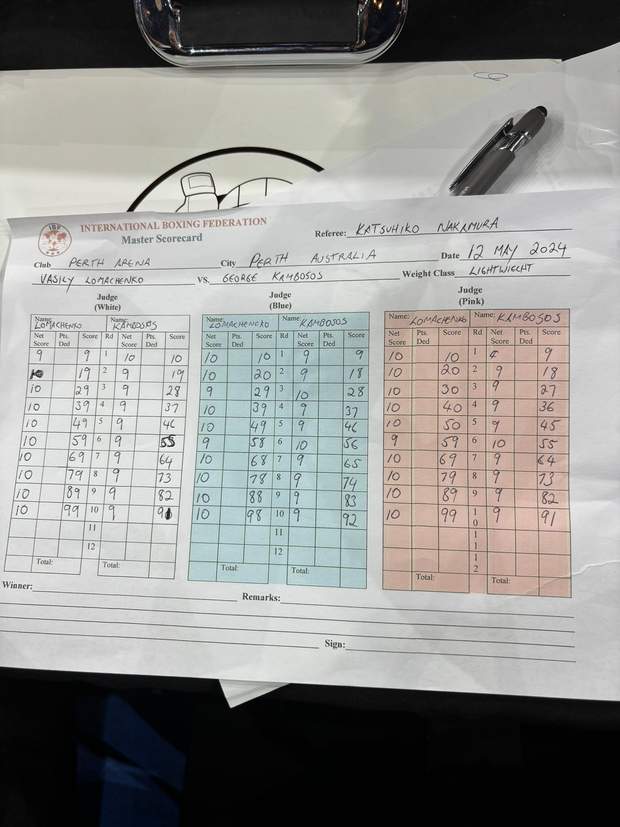 IBF
INTERNATIONAL BOXING FEDERATION
Master Scorecard
Referee: KATSUHIKO NAKAMURA
Club PERTH ARENA City PERTH AUSTRALIA Date 12 MAY 2024
VASILY LOMACHENKO VS. GEORGE KAMBOSOS Weight Class LIGHTWIEGHT
Judge
(White)
Name: LOMACHENKO Name: KAMBOSOS
Net Score Pts. Ded Score Rd Net Score Pts. Ded Score
9 9 1 10 10
10 19 2 9 19
10 29 3 9 28
10 39 4 9 37
10 49 5 9 46
10 59 6 9 55
10 69 7 9 64
10 79 8 9 73
10 89 9 9 82
10 99 10 9 91
11
12
Total: Total:
Judge
(Blue)
Name: LOMACHENCKO Name: KAMBOSOS
Net Score Pts. Ded Score Rd Net Score Pts. Ded Score
10 10 1 9 9
10 20 2 9 18
9 29 3 10 28
10 39 4 9 37
10 49 5 9 46
9 58 6 10 56
10 68 7 9 65
10 78 8 9 74
10 88 9 9 83
10 98 10 9 92
11
12
Total: Total:
Judge
(Pink)
Name: LOMACHENKO Name: KAMBOSOS
Net Score Pts. Ded Score Rd Net Score Pts. Ded Score
10 10 1 9
10 20 2 9 18
10 30 3 9 27
10 40 4 9 36
10 50 5 9 45
9 59 6 10 55
10 69 7 9 64
10 79 8 9 73
10 89 9 9 82
10 99 10 9 91
11
12
Total: Total:
Winner:
Remarks:
Sign: